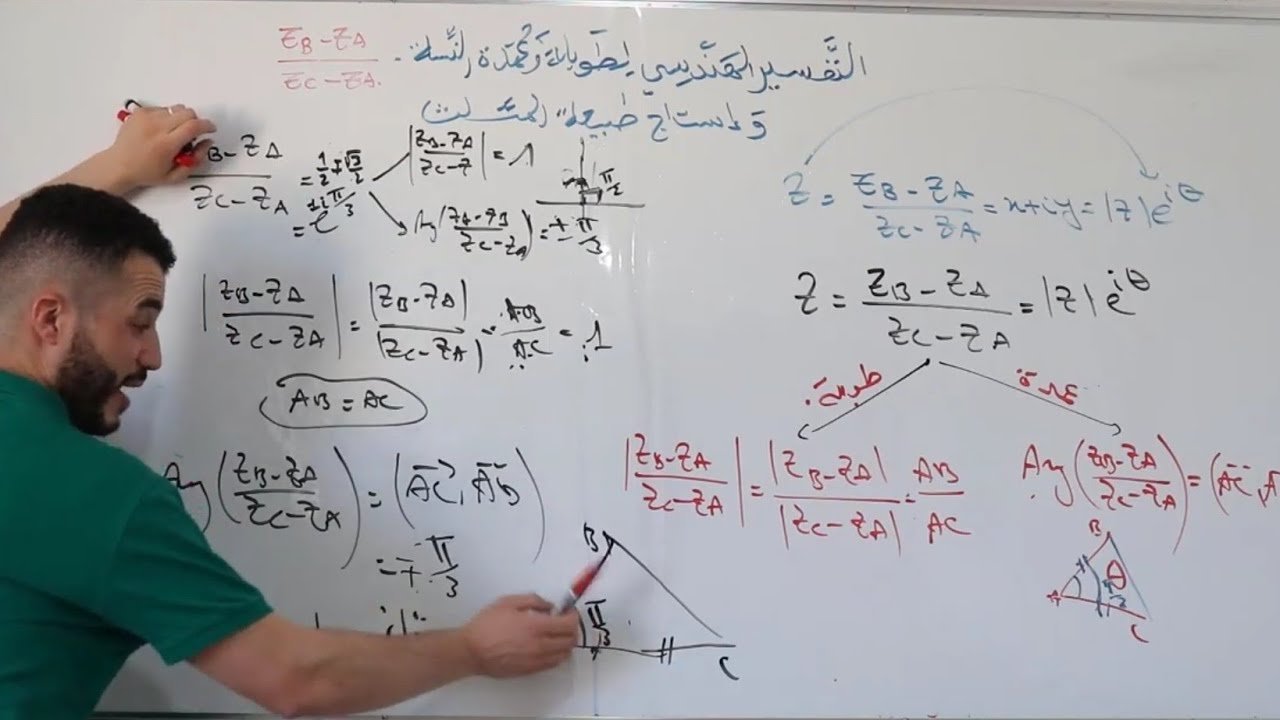 التَّفسير الهَنْدسي لِطَويلة وَعُمدة النِّسبة. \frac{z_B - z_A}{z_C - z_A}
وَاستنتاج طبيعة المثلث)
\frac{z_B - z_A}{z_C - z_A} = \frac{1}{2} ∓ \frac{\sqrt{3}}{2}
= e^{±i\frac{π}{3}}
\frac{π}{2}
|\frac{z_B - z_A}{z_C - z_A}| = \frac{|z_B - z_A|}{|z_C - z_A|} = \frac{AB}{AC} = 1
AB = AC
Arg(\frac{z_B - z_A}{z_C - z_A}) = (\vec{AC}, \vec{AB})
= ∓\frac{π}{3}
B
\frac{π}{3}
C
Z = \frac{z_B - z_A}{z_C - z_A} = x + iy = |z| e^{iθ}
Z = \frac{z_B - z_A}{z_C - z_A} = |z| e^{iθ}
طويلة.
عمدة
|\frac{z_B - z_A}{z_C - z_A}| = \frac{|z_B - z_A|}{|z_C - z_A|} = \frac{AB}{AC}
Arg(\frac{z_B - z_A}{z_C - z_A}) = (\vec{AC}, A
B
θ
A
C